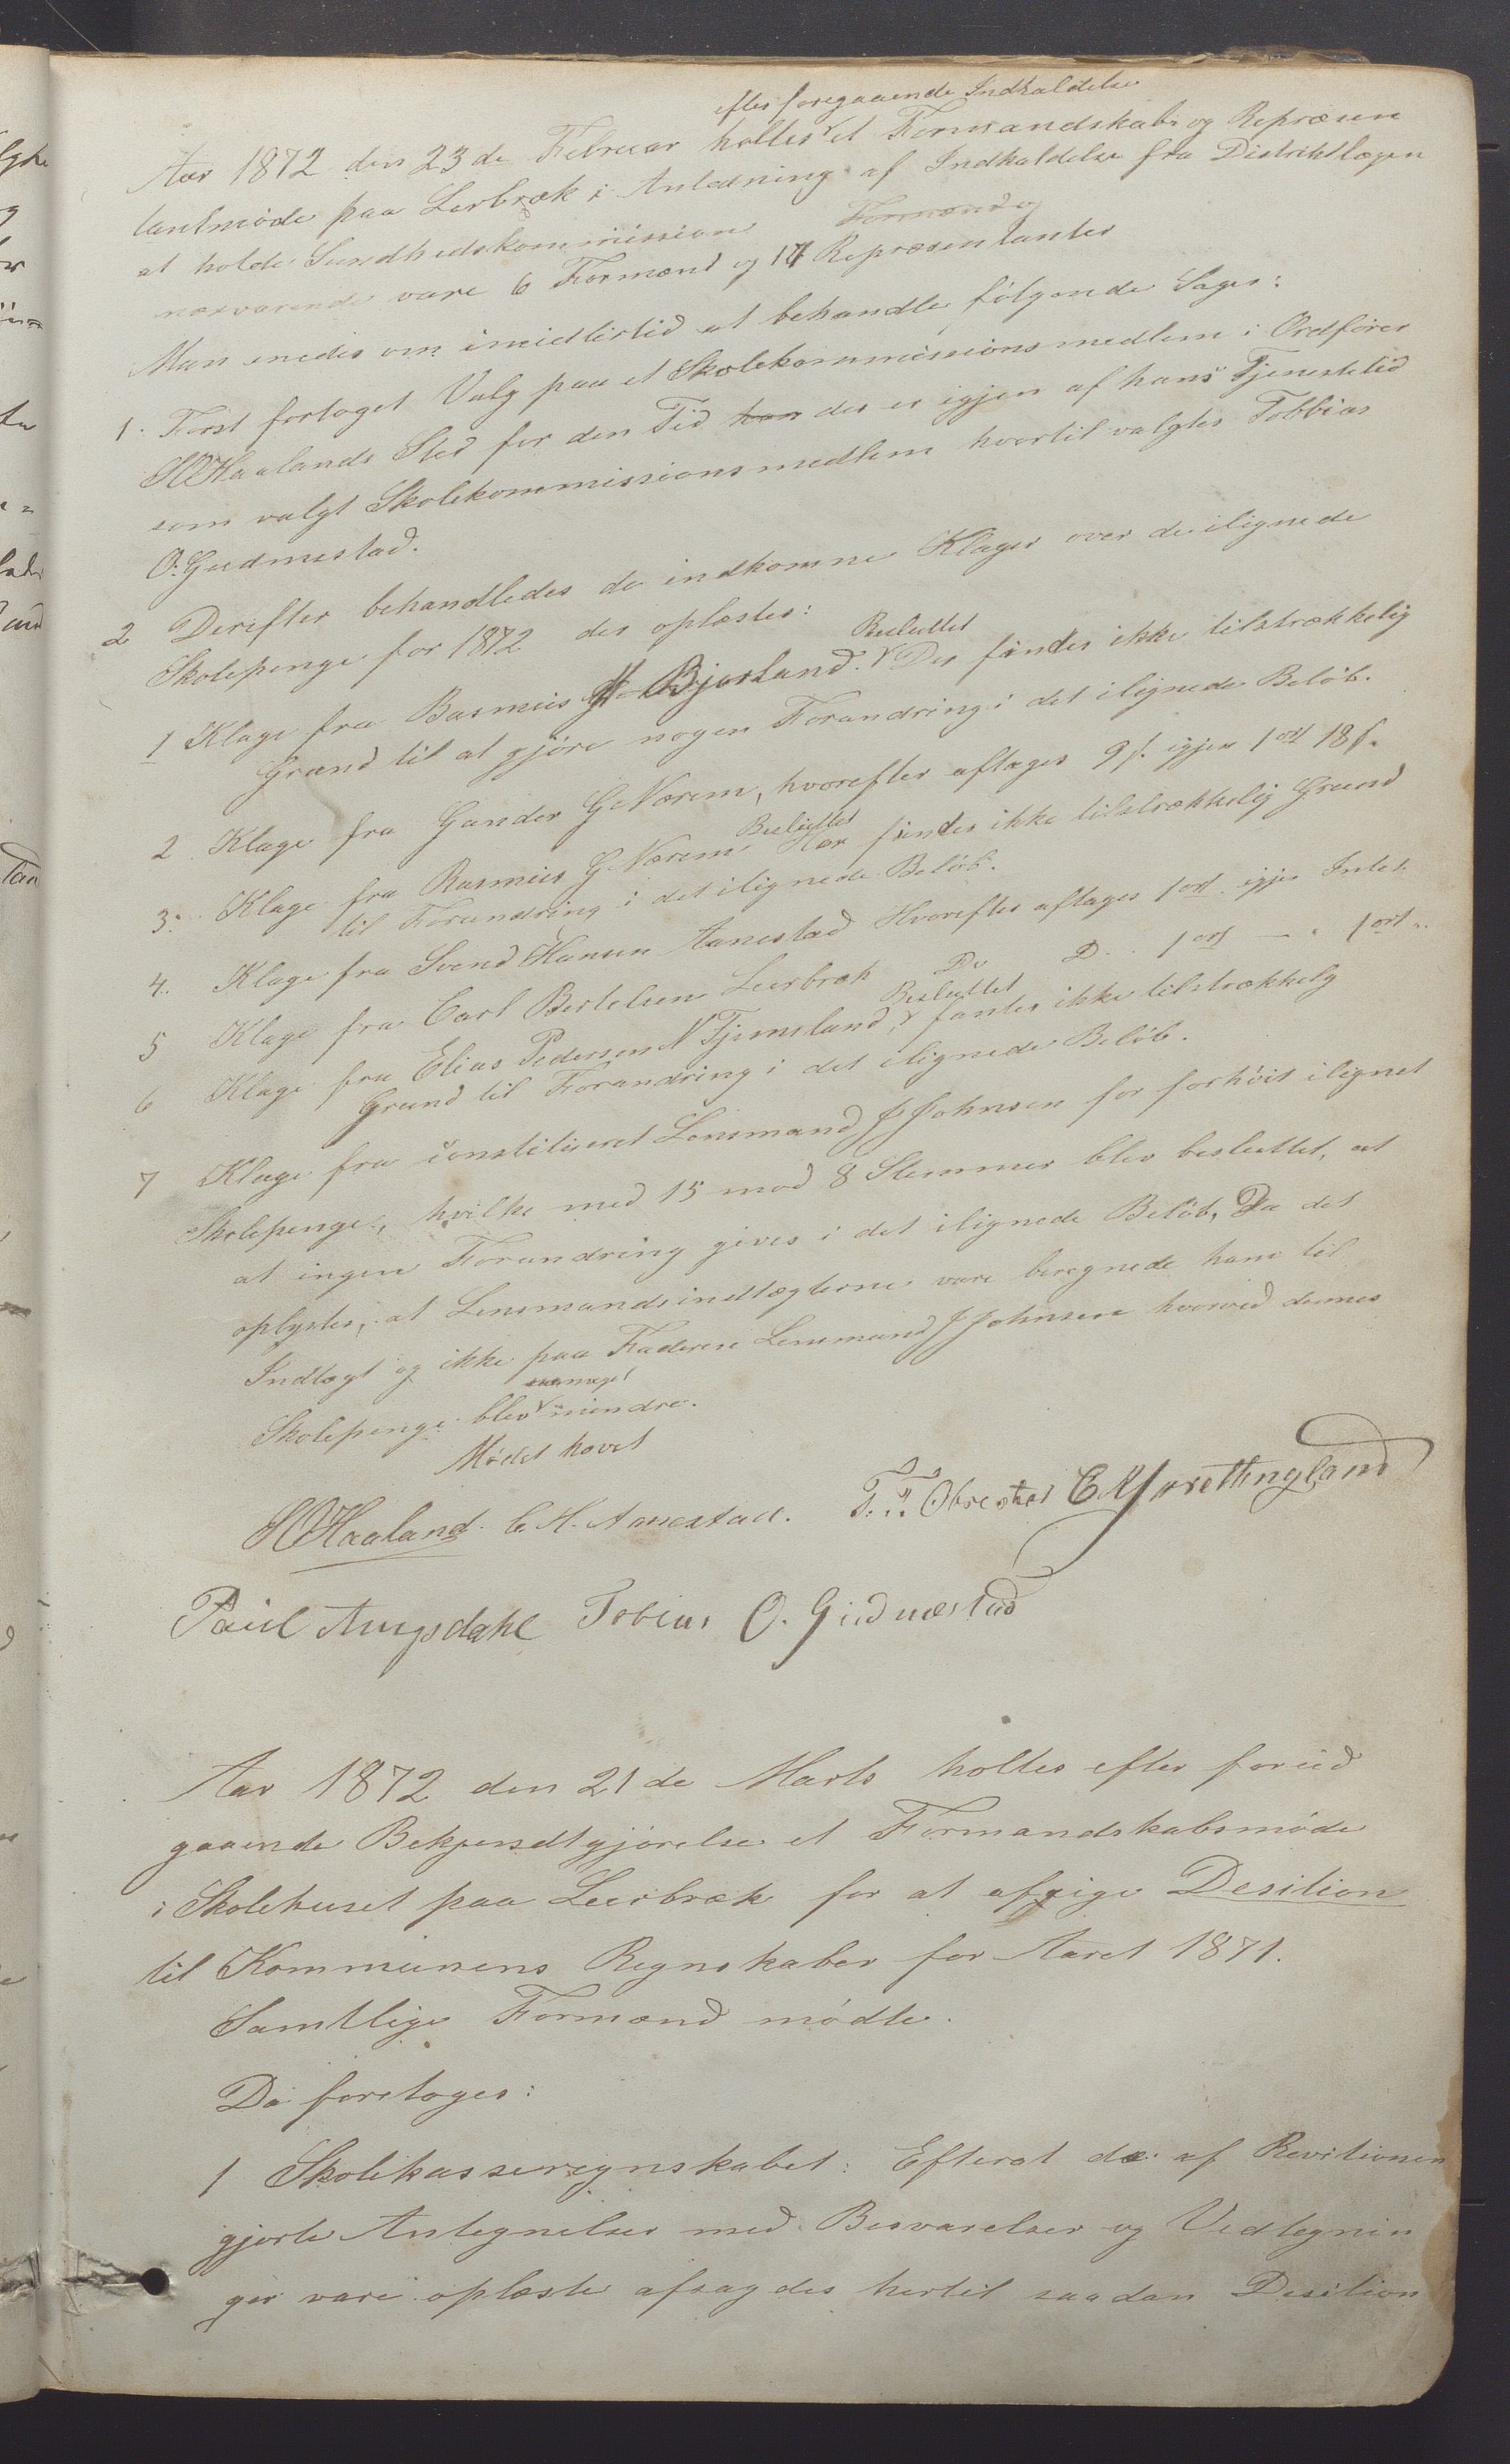 efter foregaaende Indkaldelse
Aar 1872 den 23de Februar holtes et Formandskabs og Repræsen
tantmøde paa Lerbræk i Anledning af Indkaldelse fra Distriktlægen
at holde Sundhedskommission Formænd og
nærværende vare 6 Formænd og 17 Repræsentanter
Man enedes om imidlertid at behandle følgende Sager:
1. Først fortoges Valg paa et Skolekommissionsmedlem i Ordfører
HOHaalands Sted for den Tid han der er igjen af hans Tjenestetid
som valgt Skolekommissionsmedlem hvortil valgtes Tobbias
O. Gudmestad.
2 Derefter behandledes de indkomne Klager over de ilignede
Skolepenge for 1872 der oplæstes:
Besluttet
1 Klage fra Rasmus Bjorland. Der findes ikke tilstrækkelig
Grund til at gjøre nogen Forandring i det ilignede Beløb.
2 Klage fra Gunder G Nærem, hvorefter aftages 9 s. igjen 1 ort 18 s.
Besluttet
3. Klage fra Rasmus G Nærem Her findes ikke tilstrækkelig Grund
til Forandring i det ilignede Beløb.
4. Klage fra Svend Hansen Aanestad Hvorefter aftages 1 ort igjen Intet
5 Klage fra Carl Bertelsen Leerbræk Do D. 1 ort — " 1 ort "
Besluttet
6 Klage fra Elias Pedersen N Tjemsland, fantes ikke tilstrækkelig
Grund til Forandring i det ilignede Beløb.
7 Klage fra constitueret Lensmand J Johnsen for forhøit ilignet
Skolepenge, hvilke med 15 mod 8 Stemmer blev besluttet, at
at ingen Forandring gives i det ilignede Beløb, Da det
oplystes, at Lensmandsindtægterne vare beregnede ham til
Indtægt og ikke paa Faderen Lensmand J Johnsen hvorved dennes
meget
Skolepenge blev mindre.
Mødet hævet
HOHaaland. C. H. Aanestad. T. T. Obrestad
Paul Augsdahl Tobias O. Gudmestad
Aar 1872 den 21de Marts holtes efter forud
gaaende Bekjendtgjørelse et Formandskabsmøde
i Skolehuset paa Leerbræk for at afgige Desition
til Kommunens Regnskaber for Aaret 1871.
Samtlige Formænd mødte.
Da foretoges:
1 Skolekasseregnskabet: Efterat de af Revitionen
gjorte Antegnelser med Besvarelser og Vedtegnin
ger vare oplæste afsagdes hertil saadan Desition